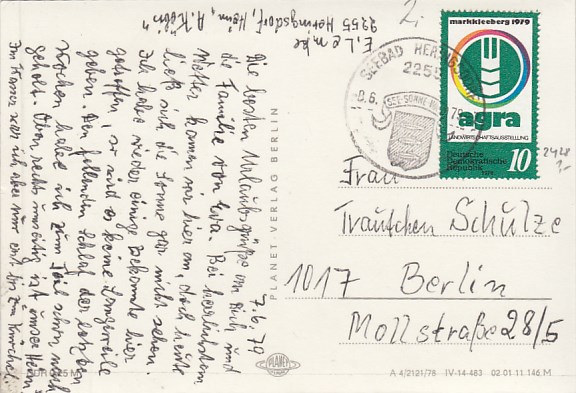 E. Lemke
2255 Heringsdorf, Heim „A. Köbis"
7.6.79
Die besten Urlaubsgrüße an Dich und
die Familie von Eva. Bei herrlichstem
Wetter kamen wir hier an, doch heute
ließ sich die Sonne gar nicht sehen
Ich habe wieder einige Bekannte hier
getroffen, so wird es keine Langeweile
geben. Den fehlenden Schlaf der letzten
Wochen habe ich zum Teil schon nach
geholt. Oben rechts unsichtig ist unser Heim.
Im Wasser war ich aber nur erst bis zum Knöchel.
2.
markkleeberg 1979
agra
LANDWIRTSCHAFTSAUSSTELLUNG
Deutsche
Demokratische
Republik
10
1979
SEEBAD HERINGSDORF
2255
-8.6.79
SEE-SONNE
2428
Frau
Trautchen Schulze
1017 Berlin
Mollstraße 28/5
PLANET VERLAG BERLIN
PLANET
DDR 0,25 M
A 4/2121/78 IV-14-483 02 01 11 146 M